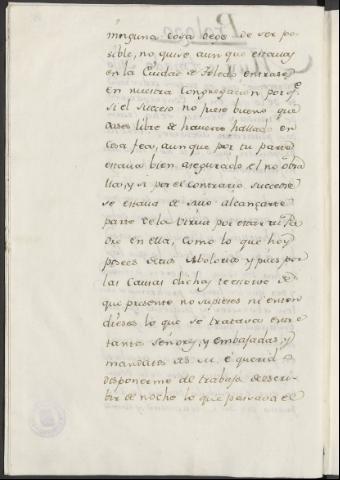 ninguna cosa deos de ser po-
sible, no quise aun que estavas
en la Ciudad de Toledo entrases
en nuestra Congregacion porq̃
si el suceso no fuese bueno que
dases libre de haverte hallado en
cosa fea, aunque por tu parte
estava bien asegurado el no obra
lla, y si por el contrario sucediese
se estava de suio alcançarte
parte de la virtud por estar tu Pa
dre en ella, como lo que hoy
posees de tus Abolorios y pues por
las causas dichas te estorve de
que presente no supieses ni enten
dieses lo que se tratava entre
tantos señores, y embajadas, y
mandatos de é querido
disponerme al trabajo de escri-
bir de noche lo que pasava el